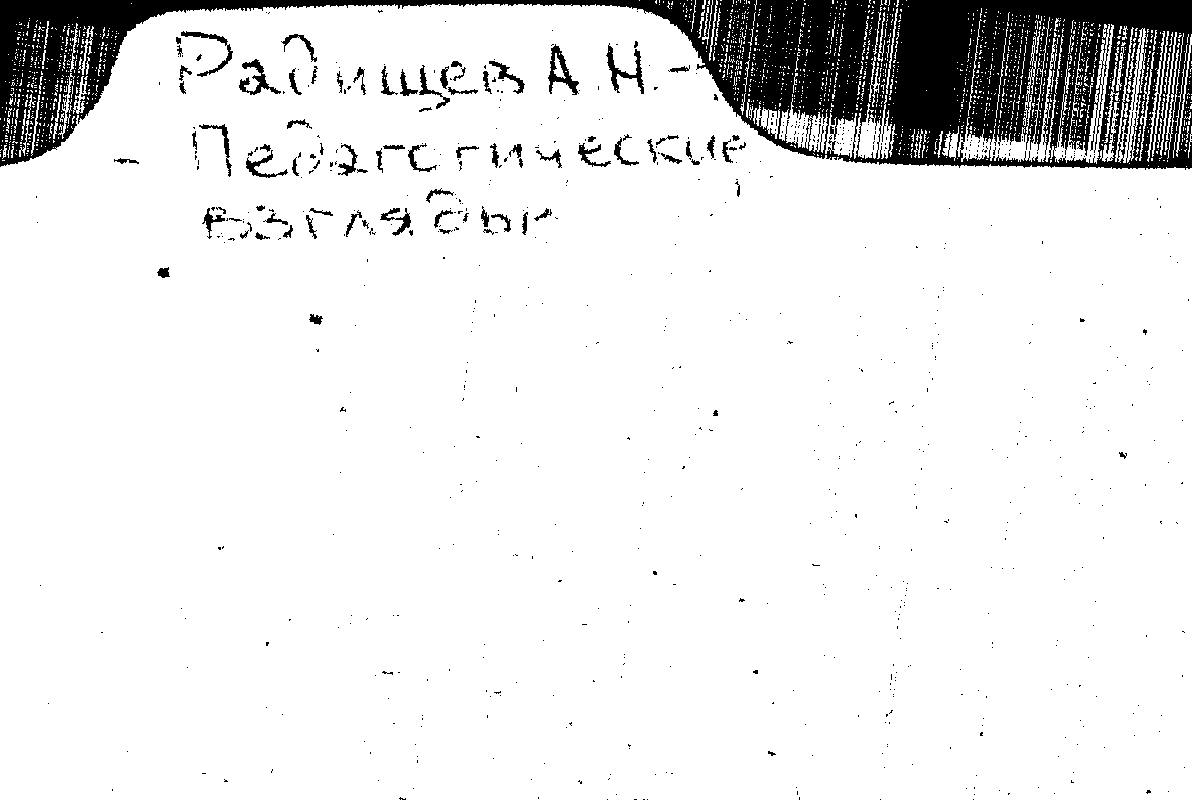 Радищев А.Н. -
- Педагогические
взгляды